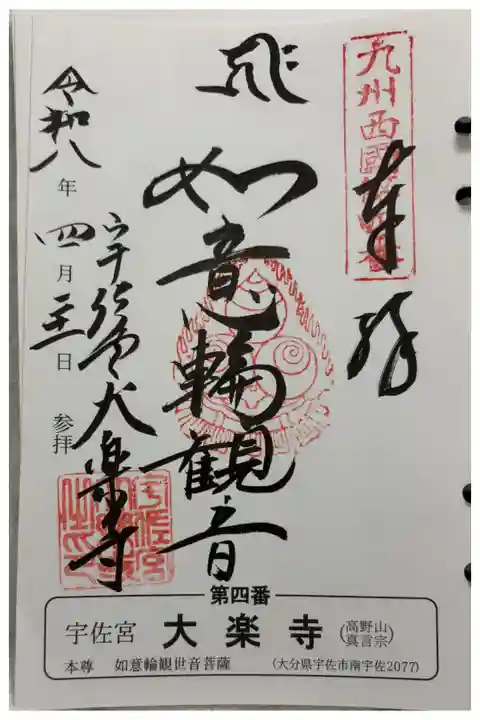 九州西國第四番
奉拝
如意輪観音
宇佐宮大楽寺
令和八年四月三日参拝
第四番
宇佐宮 大楽寺 (高野山真言宗)
本尊 如意輪観世音菩薩 (大分県宇佐市南宇佐2077)